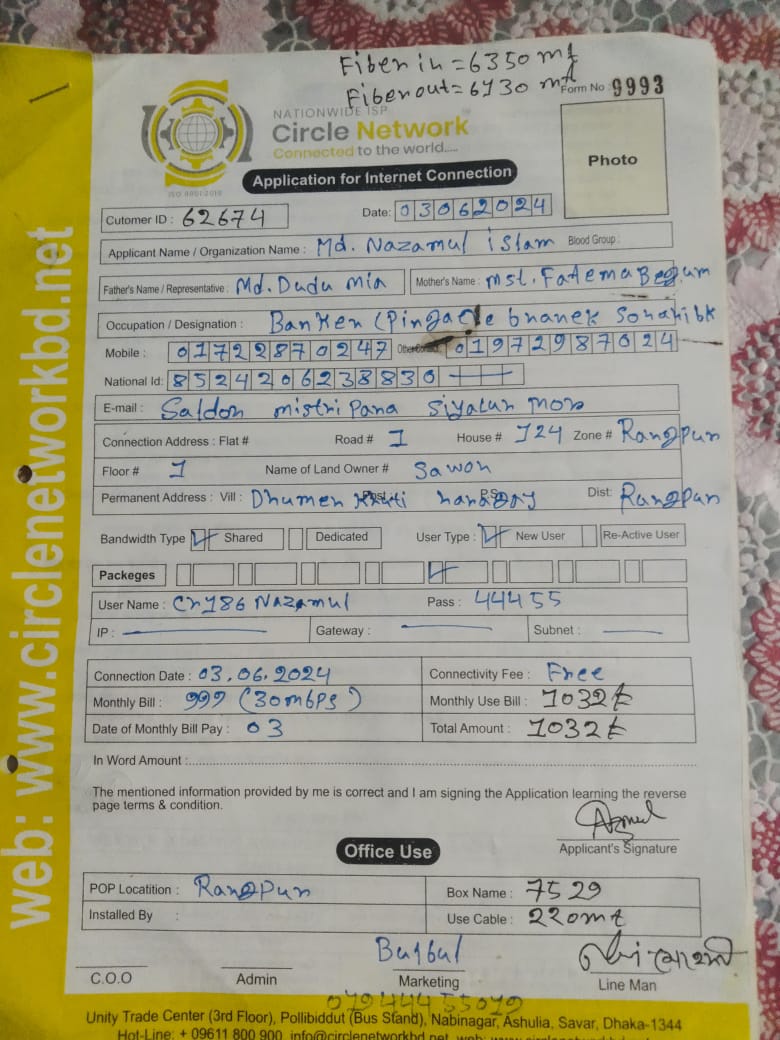 Fiber in = 6350 mt
Fiber out = 6130 mt
Form No : 9993
NATIONWIDE ISP
Circle Network
Connected to the world.....
ISO 9001:2015
Photo
Application for Internet Connection
Cutomer ID : 62674
Date: 03062024
Applicant Name / Organization Name : Md. Nazamul islam Blood Group :
Father's Name / Representative : Md. Dudu mia Mother's Name : mst. Fatema Begum
Occupation / Designation : Banker (Pingacle branek
Mobile : 01722870247 01972987024
National Id: 8524206238830
E-mail : Saldon mistri Para Siyalur mor
Connection Address : Flat # Road # 1 House # 124 Zone # Rangpur
Floor # 1 Name of Land Owner # Sawon
Permanent Address : Vill : Dhumer Kkuti Post P.S Dist: Rangpur
Bandwidth Type Shared Dedicated User Type : New User Re-Active User
Packeges
User Name : Cr186 Nazamul Pass : 44455
IP : Gateway : Subnet :
Connection Date : 03.06.2024 Connectivity Fee : Free
Monthly Bill : 999 (30mbps) Monthly Use Bill : 1032 ৳
Date of Monthly Bill Pay : 03 Total Amount : 1032 ৳
In Word Amount :
The mentioned information provided by me is correct and I am signing the Application learning the reverse
page terms & condition.
Applicant's Signature
Office Use
POP Locatition : Rangpur Box Name : 7529
Installed By : Use Cable : 220mt
Bulbul
C.O.O Admin Marketing Line Man
Unity Trade Center (3rd Floor), Pollibiddut (Bus Stand), Nabinagar, Ashulia, Savar, Dhaka-1344
Hot-Line: + 09611 800 900, info@circlenetworkbd.net, web:
web: www.circlenetworkbd.net